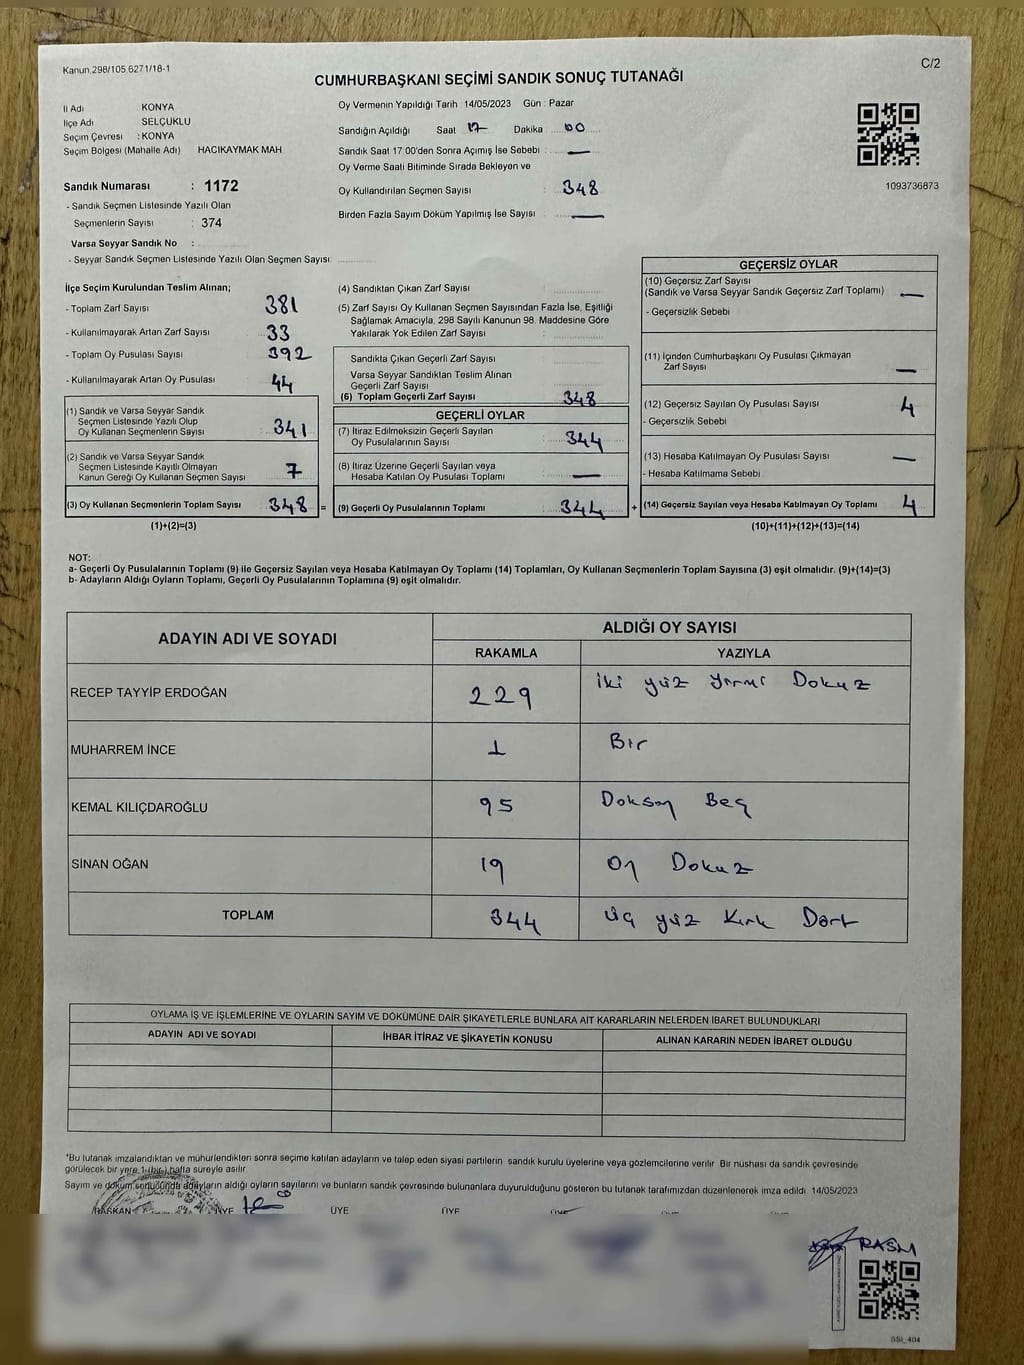 Kanun.298/105.6271/18-1
C/2
CUMHURBAŞKANI SEÇİMİ SANDIK SONUÇ TUTANAĞI
İl Adı KONYA
İlçe Adı SELÇUKLU
Seçim Çevresi : KONYA
Seçim Bölgesi (Mahalle Adı) HACIKAYMAK MAH
Sandık Numarası : 1172
- Sandık Seçmen Listesinde Yazılı Olan
Seçmenlerin Sayısı : 374
Varsa Seyyar Sandık No :
- Seyyar Sandık Seçmen Listesinde Yazılı Olan Seçmen Sayısı:
Oy Vermenin Yapıldığı Tarih : 14/05/2023 Gün : Pazar
Sandığın Açıldığı Saat 17 Dakika 00
Sandık Saat 17:00'den Sonra Açımış İse Sebebi : —
Oy Verme Saati Bitiminde Sırada Bekleyen ve
Oy Kullandırılan Seçmen Sayısı : 348
Birden Fazla Sayım Döküm Yapılmış İse Sayısı —
1093736873
İlçe Seçim Kurulundan Teslim Alınan;
- Toplam Zarf Sayısı 381
- Kullanılmayarak Artan Zarf Sayısı 33
- Toplam Oy Pusulası Sayısı 392
- Kullanılmayarak Artan Oy Pusulası 44
(1) Sandık ve Varsa Seyyar Sandık
Seçmen Listesinde Yazılı Olup
Oy Kullanan Seçmenlerin Sayısı 341
(2) Sandık ve Varsa Seyyar Sandık
Seçmen Listesinde Kayıtlı Olmayan
Kanun Gereği Oy Kullanan Seçmen Sayısı 7
(3) Oy Kullanan Seçmenlerin Toplam Sayısı 348 =
(1)+(2)=(3)
(4) Sandıktan Çıkan Zarf Sayısı
(5) Zarf Sayısı Oy Kullanan Seçmen Sayısından Fazla İse, Eşitliği
Sağlamak Amacıyla, 298 Sayılı Kanunun 98. Maddesine Göre
Yakılarak Yok Edilen Zarf Sayısı
Sandıkta Çıkan Geçerli Zarf Sayısı
Varsa Seyyar Sandıktan Teslim Alınan
Geçerli Zarf Sayısı
(6) Toplam Geçerli Zarf Sayısı 348
GEÇERLİ OYLAR
(7) İtiraz Edilmeksizin Geçerli Sayılan
Oy Pusulalarının Sayısı 344
(8) İtiraz Üzerine Geçerli Sayılan veya
Hesaba Katılan Oy Pusulası Toplamı —
(9) Geçerli Oy Pusulalarının Toplamı 344 +
GEÇERSİZ OYLAR
(10) Geçersiz Zarf Sayısı
(Sandık ve Varsa Seyyar Sandık Geçersiz Zarf Toplamı) —
- Geçersizlik Sebebi
(11) İçinden Cumhurbaşkanı Oy Pusulası Çıkmayan
Zarf Sayısı —
(12) Geçersiz Sayılan Oy Pusulası Sayısı 4
- Geçersizlik Sebebi
(13) Hesaba Katılmayan Oy Pusulası Sayısı —
- Hesaba Katılmama Sebebi
(14) Geçersiz Sayılan veya Hesaba Katılmayan Oy Toplamı 4
(10)+(11)+(12)+(13)=(14)
NOT:
a- Geçerli Oy Pusulalarının Toplamı (9) ile Geçersiz Sayılan veya Hesaba Katılmayan Oy Toplamı (14) Toplamları, Oy Kullanan Seçmenlerin Toplam Sayısına (3) eşit olmalıdır. (9)+(14)=(3)
b- Adayların Aldığı Oyların Toplamı, Geçerli Oy Pusulalarının Toplamına (9) eşit olmalıdır.
ADAYIN ADI VE SOYADI
ALDIĞI OY SAYISI
RAKAMLA YAZIYLA
RECEP TAYYİP ERDOĞAN 229 iki yüz yirmi Dokuz
MUHARREM İNCE 1 Bir
KEMAL KILIÇDAROĞLU 95 Doksan Beş
SİNAN OĞAN 19 On Dokuz
TOPLAM 344 üç yüz Kırk Dört
OYLAMA İŞ VE İŞLEMLERİNE VE OYLARIN SAYIM VE DÖKÜMÜNE DAİR ŞİKAYETLERLE BUNLARA AİT KARARLARIN NELERDEN İBARET BULUNDUKLARI
ADAYIN ADI VE SOYADI İHBAR İTİRAZ VE ŞİKAYETİN KONUSU ALINAN KARARIN NEDEN İBARET OLDUĞU
*Bu tutanak imzalandıktan ve mühürlendikten sonra seçime katılan adayların ve talep eden siyasi partilerin sandık kurulu üyelerine veya gözlemcilerine verilir. Bir nüshası da sandık çevresinde
görülecek bir yere 1 (bir) hafta süreyle asılır.
Sayım ve döküm sonucunda adayların aldığı oyların sayılarını ve bunların sandık çevresinde bulunanlara duyurulduğunu gösteren bu tutanak tarafımızdan düzenlenerek imza edildi. 14/05/2023
BAŞKAN ÜYE ÜYE ÜYE ÜYE